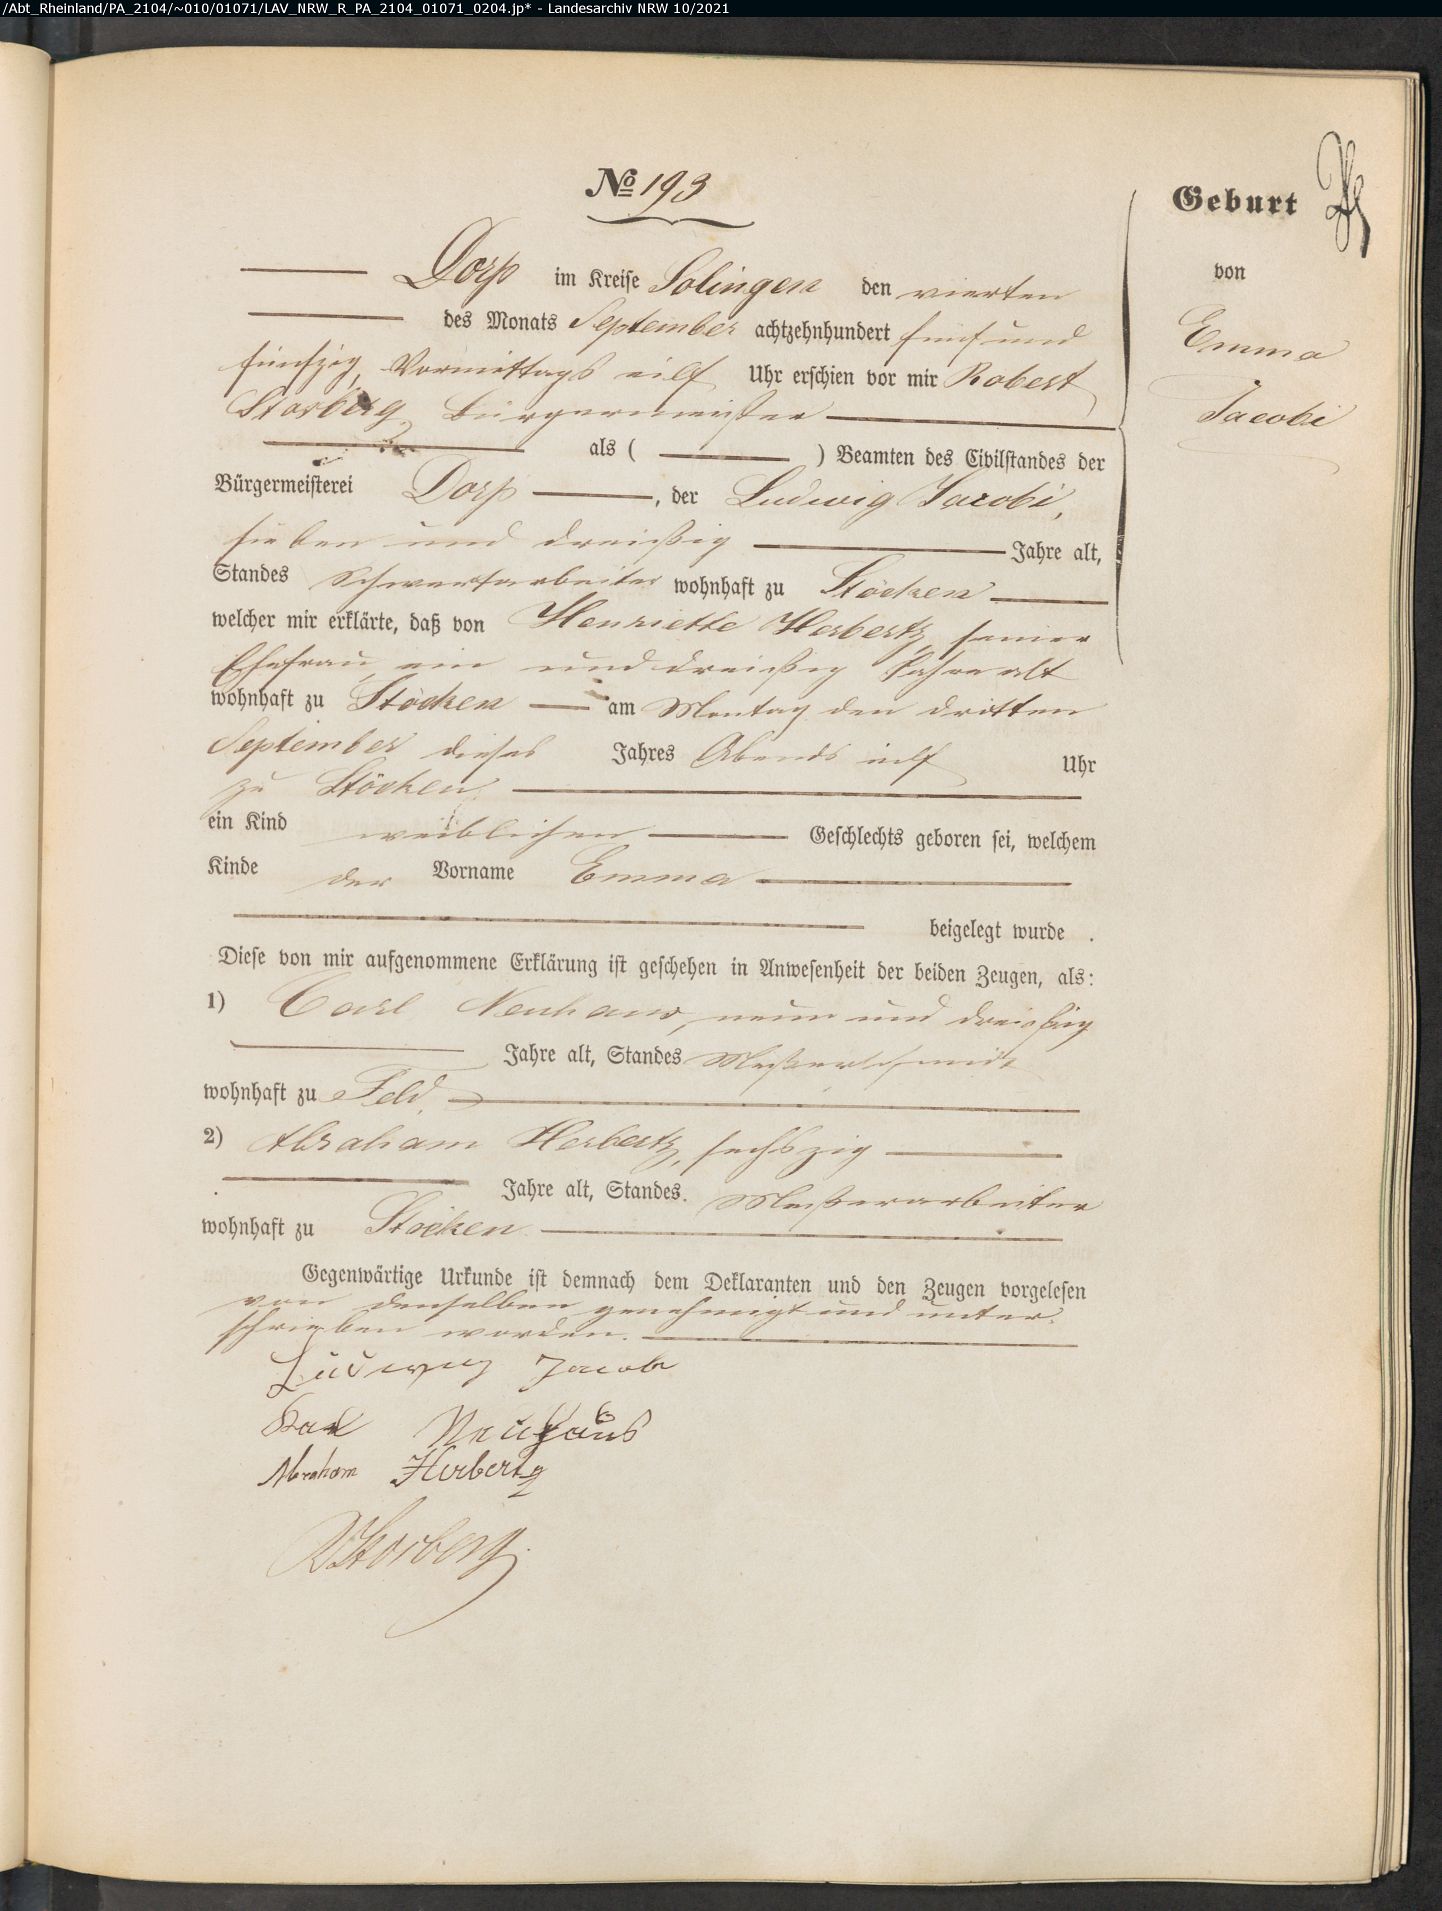 /Abt_Rheinland/PA_2104/~010/01071/LAV_NRW_R_PA_2104_01071_0204.jp* - Landesarchiv NRW 10/2021
No 193
Geburt
von
Emma
Jacobi
Dorp im Kreise Solingen den vierten
des Monats September achtzehnhundert fünf und
fünfzig, Vormittags eilf Uhr erschien vor mir Robert
Storberg Bürgermeister
als ( ) Beamten des Civilstandes der
Bürgermeisterei Dorp, der Ludwig Jacobi,
sieben und dreißig Jahre alt,
Standes Schwertarbeiter wohnhaft zu Stöcken
welcher mir erklärte, daß von Henriette Herbertz, seiner
Ehefrau, ein und dreißig Jahre alt
wohnhaft zu Stöcken am Montag den dritten
September dieses Jahres Abends eilf Uhr
zu Stöcken
ein Kind weiblichen Geschlechts geboren sei, welchem
Kinde der Vorname Emma
beigelegt wurde .
Diese von mir aufgenommene Erklärung ist geschehen in Anwesenheit der beiden Zeugen, als:
1) Carl Neuhaus, neun und dreißig
Jahre alt, Standes Messerschmidt
wohnhaft zu Feld,
2) Abraham Herbertz, sechszig
Jahre alt, Standes. Messerarbeiter
wohnhaft zu Stöcken
Gegenwärtige Urkunde ist demnach dem Deklaranten und den Zeugen vorgelesen
von denselben genehmigt und unter-
schrieben worden.
Ludwig Jacobi
Karl Neuhaus
Abraham Herbertz
RStorberg.